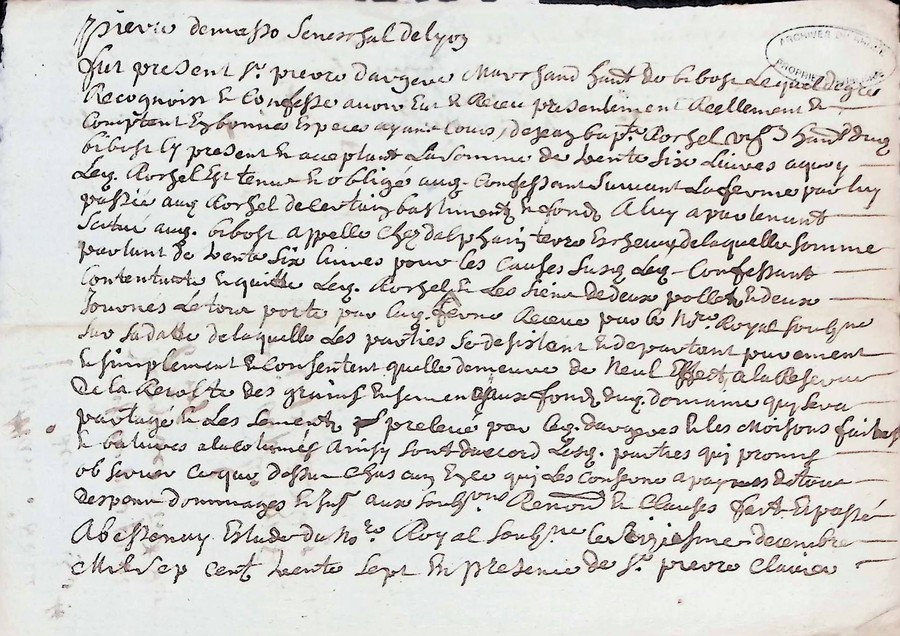 pierre demasso Seneschal de lyon
ARCHIVES DU
PROPRIETE
Fut present Sr. pierre dargere Marchand hant. de bibost Lequel de gre
Recognoist & Confesse avoir Eut & Receu presentement Reellement &
Comptent En bonnes Especes ayant Cours, de jean bap.te Rorsel hant. dud.
bibost Cy present & acceptant La Somme de trente Six Livres a quoy
Leq. Rorsel Est tenu & obligé auq. Confessant Suivant La ferme par luy
passée auq Rorsel de Certain bastiment & fondz A luy apartenant
Scitué auq. bibost appelle Chez dalphain terre Escheu, de laquelle Somme
partant de trente Six livres pour les Causes Susq. Leq. Confessant
Contentant & quitte Leq. Rorsel & Les Siens de deux pollet & deux
Jouones Le tout porte par Luq. ferme Receue par le No.re Royal Soubsigne
Sur Sa datte de laquelle Les parties Se desistent & departent purement
& simplement & Consentent quelle demeure de Neul Effect, a la Reserve
De la Recolte des grains Ensemencé aux fondz duq. domaine qui Sera
partagé & Les Sements prelevé par leq. dargere & les Moisons faites
& batures a la Coltumés Ainsy Sont d'accord Lesq. parties qui promis
observer Ce que Dessus Chascun En Ce qui Les Conserne a paynes de tous
Despens Dommages & Renon.& Clauses fect & passé
A bessenay Estude du No.re Royal Soubsigne Le Decembre
Mil Sep Cent trente Sept En presence de Sr. pierre Clavier